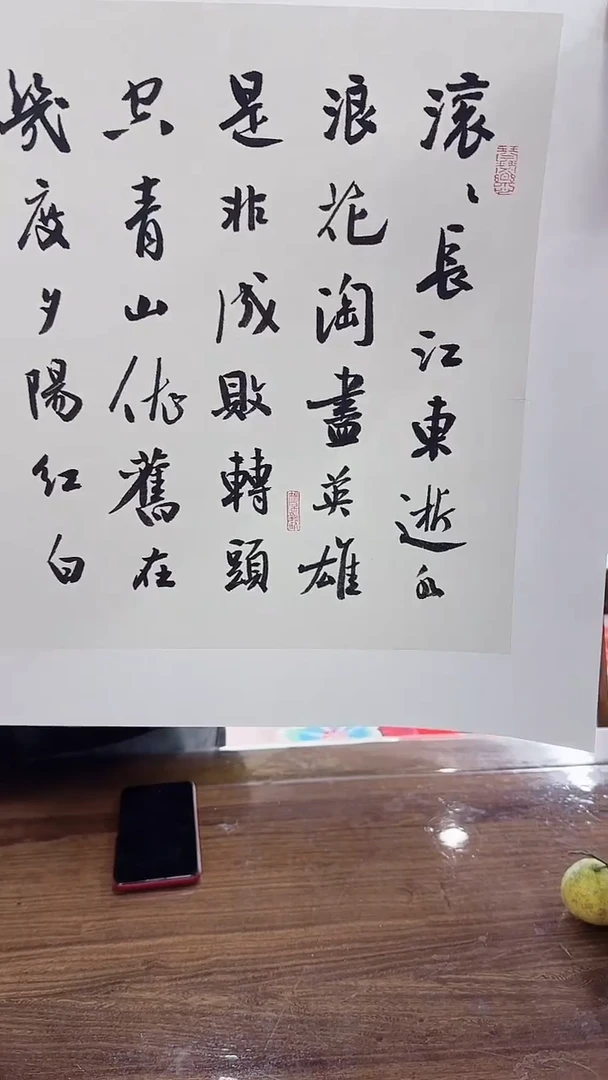 滚〻長江東逝水
浪花淘盡英雄
是非成敗轉頭
空青山依舊在
幾度夕陽紅白